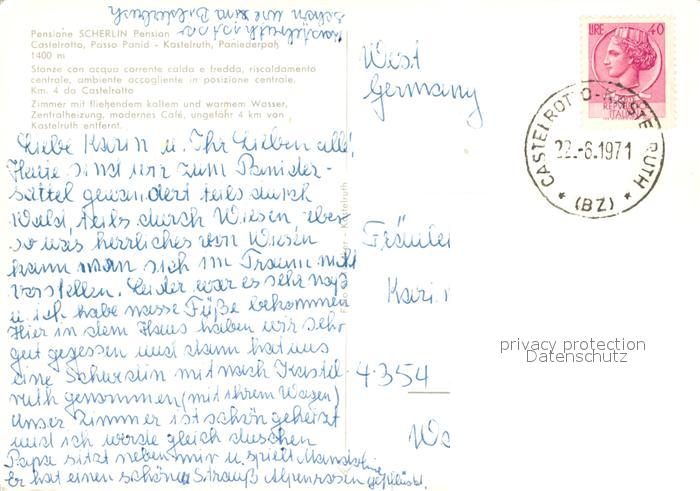 schön wie ein Bilderbuch
Kastelruth ist
Pensione SCHERLIN Pension
Castelrotto, Passo Panid - Kastelruth, Paniederpaß
1400 m
Stanze con acqua corrente calda e fredda, riscaldamento
centrale, ambiente accogliente in posizione centrale.
Km. 4 da Castelrotto
Zimmer mit fließendem kaltem und warmem Wasser,
Zentralheizung, modernes Café, ungefähr 4 km von
Kastelruth entfernt.
Liebe Karin u. Ihr Lieben alle!
Heute sind wir zum Panider-
sattel gewandert teils durch
Wald, teils durch Wiesen eben
so was herrliches von Wiesen
kann man sich im Traum nicht
vorstellen. Leider war es sehr naß
u. ich habe nasse Füße bekommen
Hier in dem Haus haben wir sehr
gut gegessen und dann hat uns
eine mit nach Kastel-
ruth genommen (mit ihrem Wagen)
Unser Zimmer ist schön geheizt
und ich werde gleich duschen
Papa sitzt neben mir u. spielt Mandoline
er hat einen schönen Strauß Alpenrosen gepflückt.
Kastelruth
West
Germany
Fräulei
Karin
4354
Wa
LIRE 40
REPUBBLICA
ITALIANA
CASTELROTTO-KASTELRUTH
22.-6.1971
* (BZ) *
privacy protection
Datenschutz